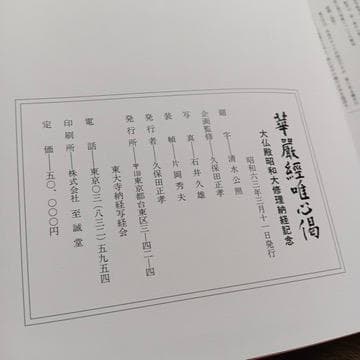 華嚴經唯心偈
大仏殿昭和大修理納経記念
昭和六三年三月十一日発行
題字──清水公照
企画監修──久保田正孝
写真──石井久雄
装幀──片岡秀夫
発行者──久保田正孝
発行所──〒110東京都台東区三─四二─四
東大寺納経写経会
電話──東京〇三(八三二)五九五四
印刷所──株式会社 至誠堂
定価──五〇、〇〇〇円